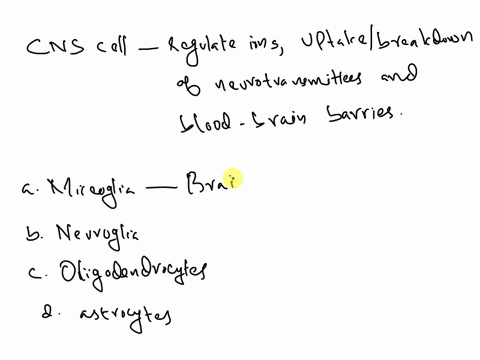 CNS cell — Regulate ions, uptake/breakdown
of neurotransmittees and
blood-brain barries.
a. Microglia — Brai
b. Neuroglia
c. Oligodendrocytes
d. astrocytes